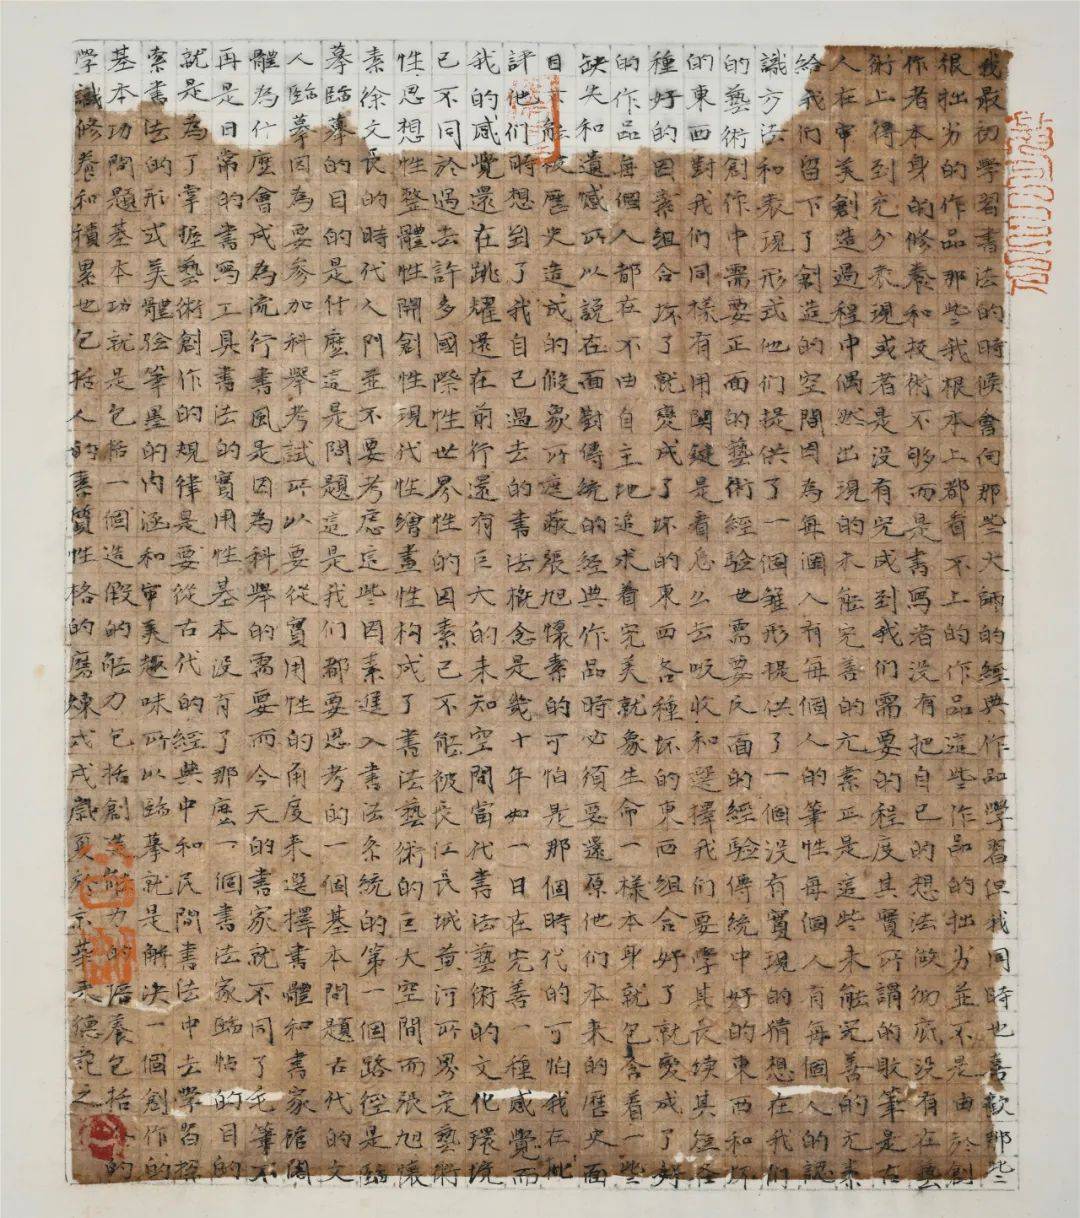 我最初學習書法的時候會向那些大師的經典作品學習但我同時也喜歡那些
很拙劣的作品那些我根本上都看不上的作品這些作品的拙劣並不是由於創
作者本身的修養和技術不够而是書寫者没有把自己的想法做徹底没有在藝
術上得到充分表現或者是没有完成到我们需要的程度其實所謂的敗筆是古
人在审美創造過程中偶然出現的未能完善的元素正是這些未能完善的元素
给我们留下了創造的空間因為每個人有每個人的筆性每個人有每個人的認
識方法和表現形式他们提供了一個雛形提供了一個没有實現的猜想在我们
的藝術創作中需要正面的藝術經驗也需要反面的經驗傳統中好的東西和坏
的東西對我们同樣有用関鍵是看怎么去吸收和選擇我们要學其長续其
種好的因素組合坏了就變成了坏的東西各種坏的東西組合好了就變成了好
的作品每個人都在不由自主地追求着完美就象生命一樣本身就包含着一些
缺失和遺憾所以説在面對傳統的經典作品時必須要還原他们本来的歷史面
目能被歷史造成的假象所遮蔽張旭懷素的可怕是那個時代的可怕我在批
評他们時想到了我自己過去的書法概念是幾十年如一日在完善一種感覺而
我的感覺還在跳耀還在前行還有巨大的未知空間當代書法藝術的文化環境
已不同於過去許多國際性世界性的因素已不能被長江長城黄河所界定藝術
性思想性整體性開創性現代性繪畫性构成了書法藝術的巨大空間而張旭懷
素徐文長的時代人門並不要考慮這些因素進入書法系統的第一個路徑是臨
摹臨摹的目的是什麼這是問題這是我们都要思考的一個基本問題古代的文
人臨摹因為要參加科舉考試所以要從實用性的角度来選擇書體和書家館閣
體為什麼會成為流行書風是因為科舉的需要而今天的書家就不同了毛筆不
再是日常的書寫工具書法的實用性基本没有了那麼一個書法家臨帖的目的
就是為了掌握藝術創作的規律是要從古代的經典中和民間書法中去學習探
索書法的形式美體验筆墨的内涵和审美趣味所以臨摹就是解决一個創作的
基本功問題基本功就是包括一個造假的能力包括創造能力的培養包括的
學識修養和積累也包括人的素質性格的磨煉戊戌歲夏於京華德記之